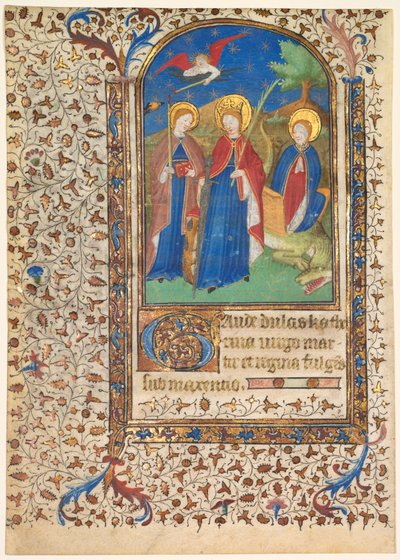 Gaude dulcis kathe
rina uirgo mar
tir et regina fulges
sub maxentio.